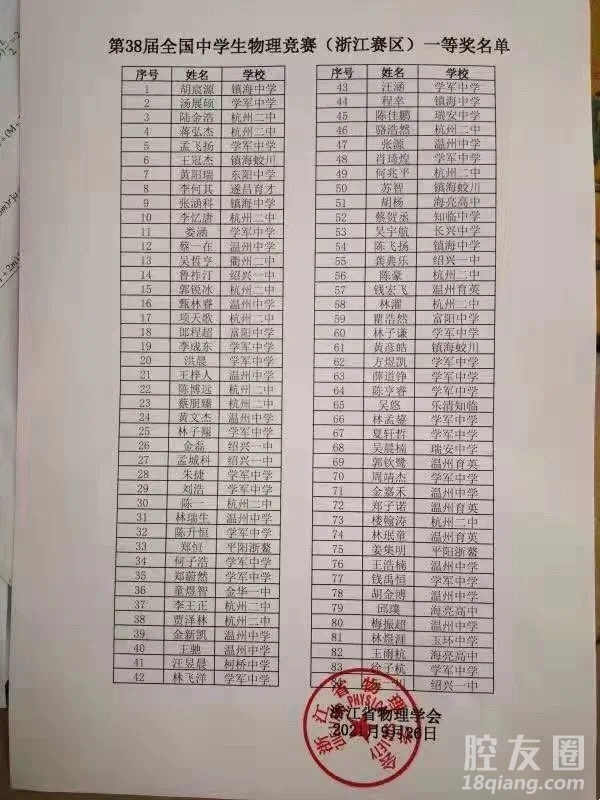 第38届全国中学生物理竞赛（浙江赛区）一等奖名单
序号 姓名 学校
1 胡宸源 镇海中学
2 汤展硕 学军中学
3 陆金浩 杭州二中
4 蒋弘杰 杭州二中
5 孟飞扬 学军中学
6 王冠杰 镇海蛟川
7 黄阳瑞 东阳中学
8 李何其 遂昌育才
9 张涵科 镇海中学
10 李忆唐 杭州二中
11 娄涵 学军中学
12 蔡一在 温州中学
13 吴哲亨 衢州二中
14 鲁祚汀 绍兴一中
15 郭锐冰 杭州二中
16 甄林睿 温州中学
17 项天歌 杭州二中
18 郎程超 富阳中学
19 李成东 学军中学
20 洪晨 学军中学
21 王梓人 温州中学
22 陈博远 杭州二中
23 蔡朋臻 杭州二中
24 黄文杰 温州中学
25 林子翔 学军中学
26 金磊 绍兴一中
27 孟城科 绍兴一中
28 朱捷 学军中学
29 刘浩 学军中学
30 陈一 杭州二中
31 林瑞生 温州中学
32 陈升恒 学军中学
33 郑恒 平阳浙鳌
34 何子浩 学军中学
35 郑蔚然 学军中学
36 童煜智 金华一中
37 李王正 杭州二中
38 贾泽林 杭州二中
39 金新凯 温州中学
40 王驰 温州中学
41 汪昱晨 柯桥中学
42 林飞洋 学军中学
序号 姓名 学校
43 汪涵 学军中学
44 程幸 镇海中学
45 陈佳鹏 瑞安中学
46 骆浩然 杭州二中
47 张源 温州中学
48 肖琦煌 学军中学
49 何兆平 杭州二中
50 苏智 镇海蛟川
51 胡杨 海亮高中
52 蔡贺丞 知临中学
53 吴宇航 长兴中学
54 陈飞扬 镇海中学
55 龚典乐 绍兴一中
56 陈豪 杭州二中
57 钱宏飞 温州育英
58 林濯 杭州二中
59 瞿浩然 富阳中学
60 林子谦 学军中学
61 黄彦皓 镇海蛟川
62 方煜凯 学军中学
63 薛道铮 学军中学
64 陈亨睿 学军中学
65 吴悠 乐清知临
66 林孟鋆 学军中学
67 夏轩哲 学军中学
68 吴晨楠 瑞安中学
69 郭钦鹭 温州育英
70 周靖杰 学军中学
71 金嘉禾 温州中学
72 郑子诺 温州育英
73 楼翰涛 杭州二中
74 林珉童 温州育英
75 姜集明 学军中学
76 王浩楠 温州中学
77 钱禹恒 学军中学
78 胡金博 温州中学
79 邱璞 海亮高中
80 梅振超 温州中学
81 林煜涯 玉环中学
82 王雨杭 海亮高中
83 徐子杭 学军中学
绍兴一中
浙江省物理学会
2021月9月26日
腔友圈
18qiang.com